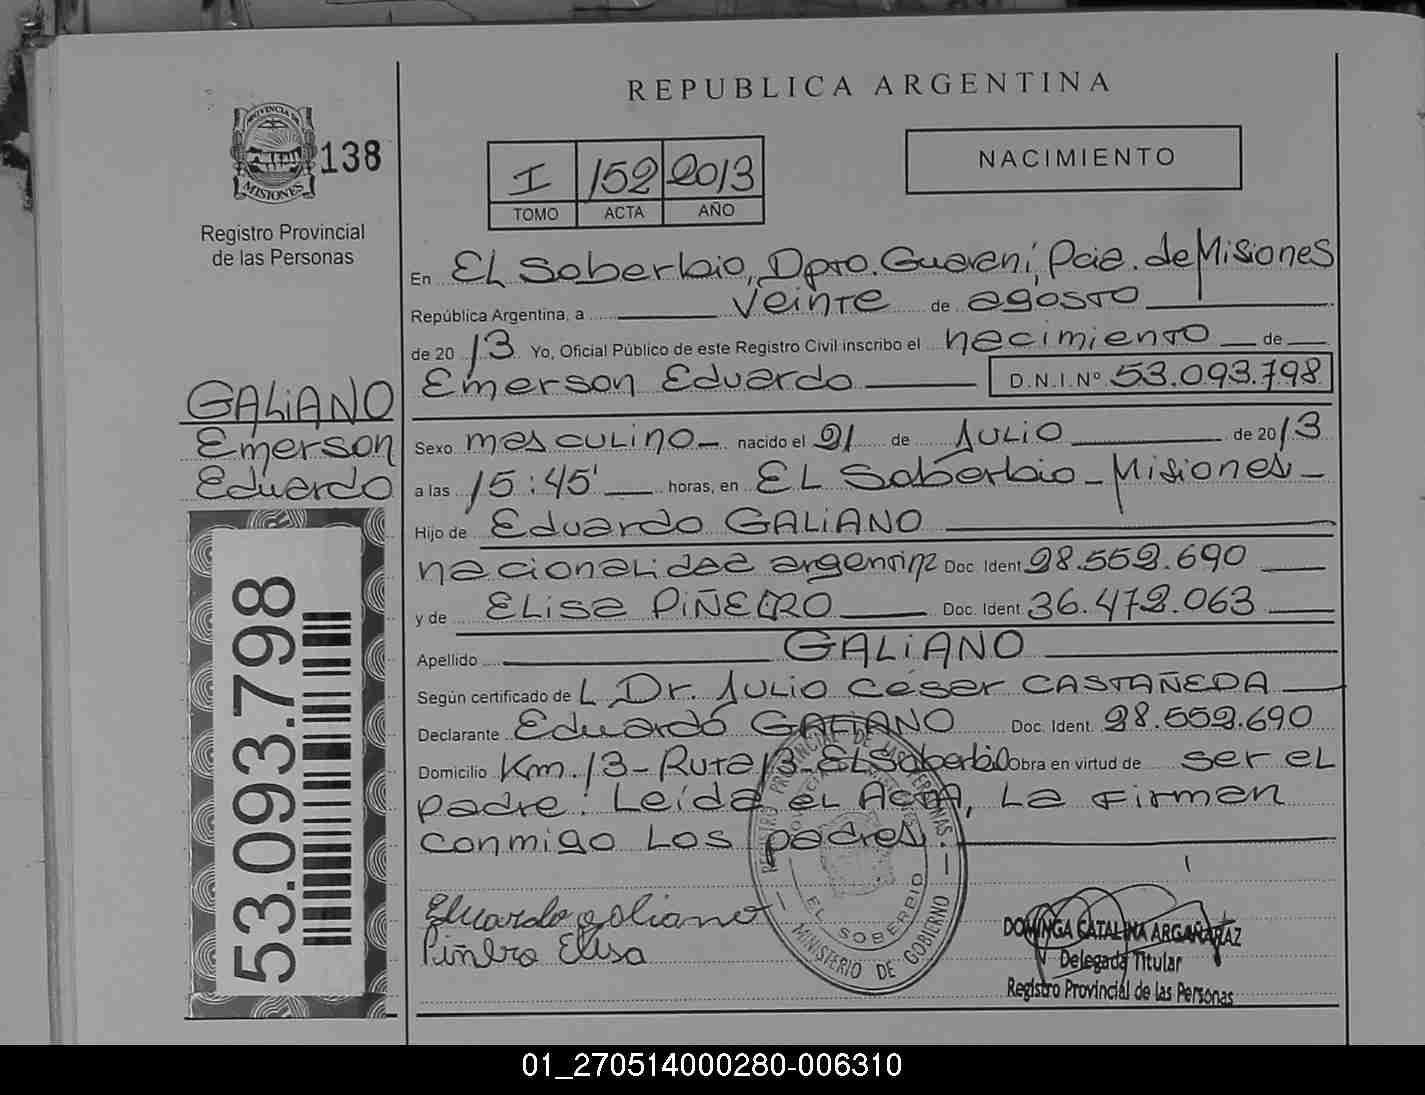 REPUBLICA ARGENTINA
PROVINCIA DE
MISIONES
138
Registro Provincial
de las Personas
I 152 2013
TOMO ACTA AÑO
NACIMIENTO
En EL Soberbio, Dpto. Guaraní, Pcia. de Misiones
República Argentina, a veinte de agosto
de 20 13 Yo, Oficial Público de este Registro Civil inscribo el nacimiento de
Emerson Eduardo D.N.I.Nº 53.093.798
GALIANO
Emerson
Eduardo
Sexo masculino nacido el 21 de Julio de 20 13
a las 15:45' horas, en EL Soberbio - Misiones -
Hijo de Eduardo GALIANO
nacionalidad argentina Doc. Ident 28.552.690
y de Elisa PIÑEIRO Doc. Ident 36.472.063
Apellido GALIANO
Según certificado de L Dr. Julio César CASTAÑEDA
Declarante Eduardo GALIANO Doc. Ident. 28.552.690
Domicilio Km. 13 - Ruta 13 - El Soberbio Obra en virtud de ser el
padre. Leída el Acta, La firman
conmigo Los padres.
Eduardo galiano
Piñeiro Elisa
REGISTRO PROVINCIAL DE LAS PERSONAS
EL SOBERBIO
MINISTERIO DE GOBIERNO
DOMINGA CATALINA ARGAÑARAZ
Delegada Titular
Registro Provincial de las Personas
53.093.798
01_270514000280-006310